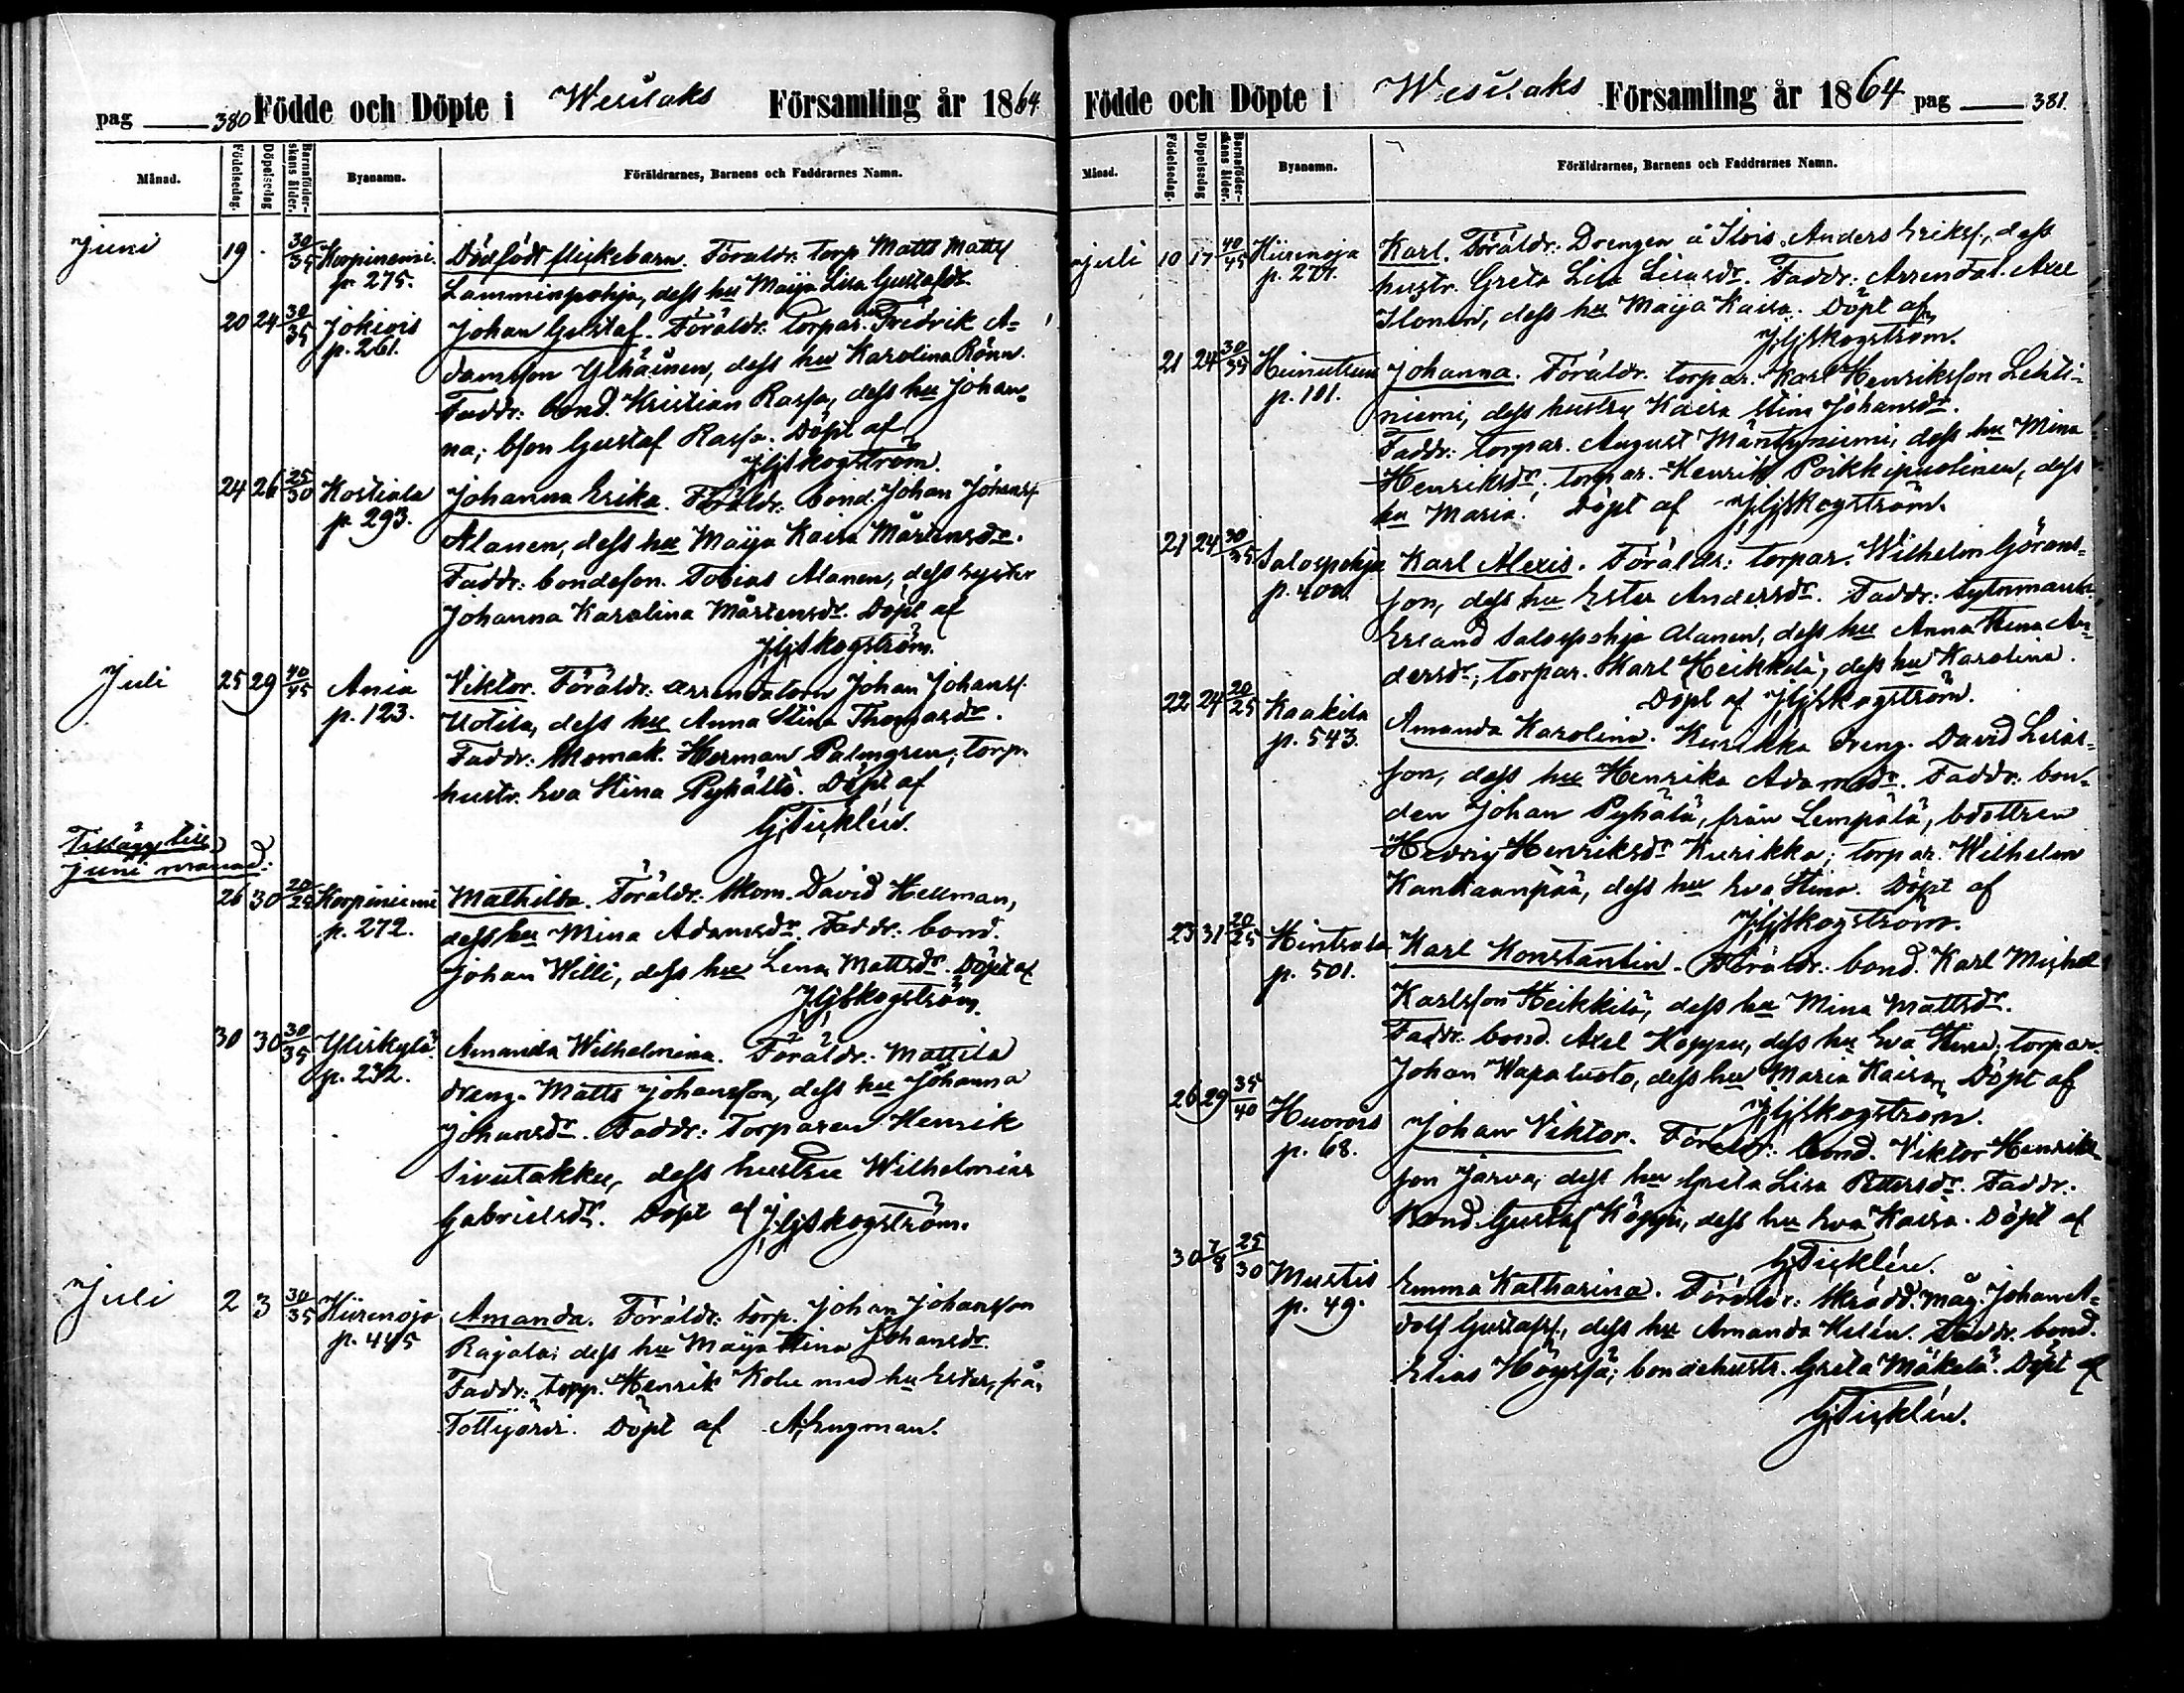 pag 380 Födde och Döpte i Wesilaks Församling år 1864
Månad. Födelsedag. Döpelsedag Barnaföderskans ålder. Byanamn. Föräldrarnes, Barnens och Faddrarnes Namn.
Juni 19 30/35 Korpiniemi Dödfödt flickebarn. Föräldr: torp. Matts Mattss.
p. 275. Lamminpohja, dess hu Maija Lisa Gustafsdr.
20 24 30/35 Jokiois Johan Gustaf. Föräldr. torpar. Fredrik A-
p. 261. damsson Yhäinen, dess hu Karolina Rönn.
Faddr: bond. Kristian Rassa, dess hu Johan-
na; bson Gustaf Rassa. Döpt af
JGSkogström.
24 26 25/30 Kostiala Johanna Erika. Föräldr. bond. Johan Johanss.
p. 293. Alanen, dess hu Maija Kaisa Mårtensdr.
Faddr: bondeson. Tobias Alanen, dess syster
Johanna Karolina Mårtensdr. Döpt af
JGSkogström.
Juli 25 29 40/45 Ania Viktor. Föräldr: arrendatorn Johan Johanss.
p. 123. Uotila, dess hu Anna Stina Thomasdr.
Faddr: Skomak. Herman Palmgren; torp.
hustr. Eva Stina Pyhältö. Döpt af
GTicklén.
Tillägg till
juni månad:
26 30 20/25 Korpiniemi Mathilda. Föräldr: Skom. David Hellman,
p. 272. dess hu Mina Adamsdr. Faddr: bond.
Johan Willi, dess hu Lena Mattsdr. Döpt af
JGSkogström.
30 30 30/35 Yliskylä Amanda Wilhelmina. Föräldr. Mattila
p. 232. dräng. Matts Johansson, dess hu Johanna
Johansdr. Faddr: Torparen Henrik
Sivutakku, dess hustru Wilhelmina
Gabrielsdr. Döpt af JGSkogström.
Juli 2 3 30/35 Hiirenoja Amanda. Föräldr: torp. Johan Johansson
p. 445 Rajala; dess hu Maija Stina Johansdr.
Faddr: torp. Henrik Kolu med hu Ester, från
Tottijärvi. Döpt af AEngman.
Födde och Döpte i Wesilaks Församling år 1864 pag 381.
Månad. Födelsedag. Döpelsedag Barnaföderskans ålder. Byanamn. Föräldrarnes, Barnens och Faddrarnes Namn.
Juli 10 17 40/45 Hiirenoja Karl. Föräldr: Drengen å Ilois. Anders Erikss., dess
p. 277. hustr. Greta Lisa Lisasdr. Faddr: Arrendat. Axel
Ilonen, dess hu Maija Kaisa. Döpt af
JGSkogström.
21 24 30/35 Heinuttuna Johanna. Föräldr. torpar. Karl Henriksson Lehti-
p. 101. niemi, dess hustru Kaisa Stina Johansdr.
Faddr: torpar. August Mäntyniemi, dess hu Mina
Henriksdr; torpar. Henrik Poikkipuolinen, dess
hu Maria. Döpt af JGSkogström.
21 24 30/35 Salospohja Karl Alexis. Föräldr: torpar. Wilhelm Görans-
p. 400. son, dess hu Ester Andersdr. Faddr: sytnmank.
Erland Salospohja Alanen, dess hu Anna Stina An-
dersdr; torpar. Karl Heikkilä, dess hu Karolina.
Döpt af JGSkogström.
22 24 20/25 Kaakila Amanda Karolina. Kurikka dreng. David Lisas-
p. 543. son, dess hu Henrika Adamsdr. Faddr: bon-
den Johan Pyhälä, från Lempälä, bdottren
Hedvig Henriksdr Kurikka; torpar. Wilhelm
Kankaanpää, dess hu Eva Stina. Döpt af
JGSkogström.
23 31 20/25 Hintsala Karl Konstantin. Föräldr. bond. Karl Michel
p. 501. Karlsson Heikkilä, dess hu Mina Mattsdr.
Faddr. bond. Axel Koppau, dess hu Eva Stina; torpar.
Johan Wapaluoto, dess hu Maria Kaisa. Döpt af
JGSkogström.
26 29 35/40 Huorois Johan Viktor. Föräldr: bond. Viktor Henriks-
p. 68. son Järva, dess hu Greta Lisa Pettersdr. Faddr.
bond. Gustaf Köppi, dess hu Eva Kaisa. Döpt af
GTicklén.
30 7/8 25/30 Mustis Emma Katharina. Föräldr: Skrädd.mäg. Johan A-
p. 49. dolf Gustafss., dess hu Amanda Helén. Faddr. bond.
Elias Högsjä; bondehustr. Greta Mäkelä. Döpt af
GTicklén.